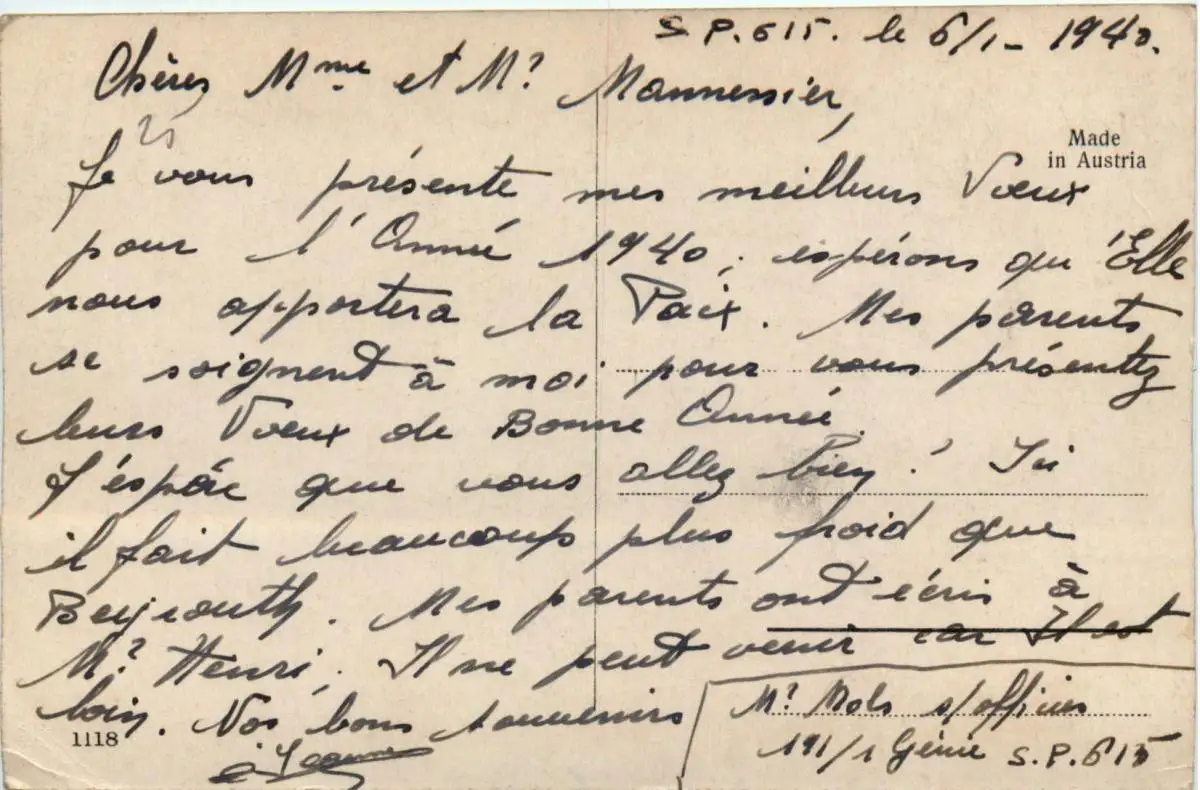 S.P. 615. le 6/1 - 1940.
Chères Mme et Mr Mannessier,
Made
in Austria
Je vous présente mes meilleurs Voeux
pour l'Année 1940, espérons qu'Elle
nous apportera la Paix. Mes parents
se soignent à moi pour vous présentez
leurs Voeux de Bonne Année.
J'espère que vous allez bien! Ici
il fait beaucoup plus froid que
Beyrouth. Mes parents ont écris à
Mr Henri. Il ne peut venir car Il est
loin. Nos bons souvenirs
à Jeanne
1118
Mr Mols s/officier
191/1 Génie S.P. 615